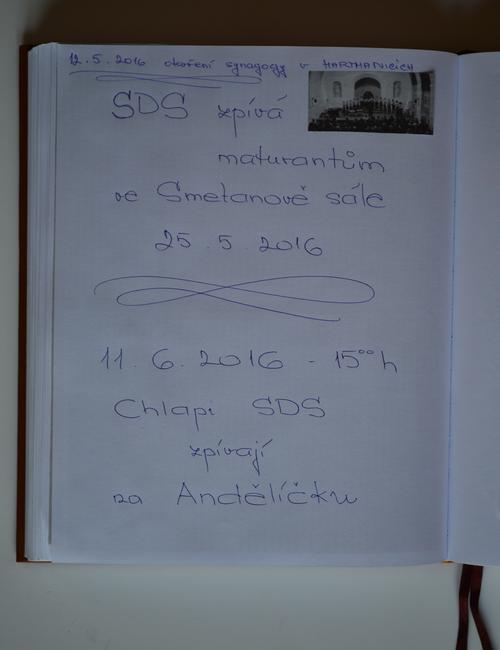 12.5.2016 okoření synagogy v HARTMANICích
SDS zpívá
maturantům
ve Smetanově sále
25.5.2016
11.6.2016 - 15⁰⁰ h
Chlapi SDS
zpívají
za Andělíčku